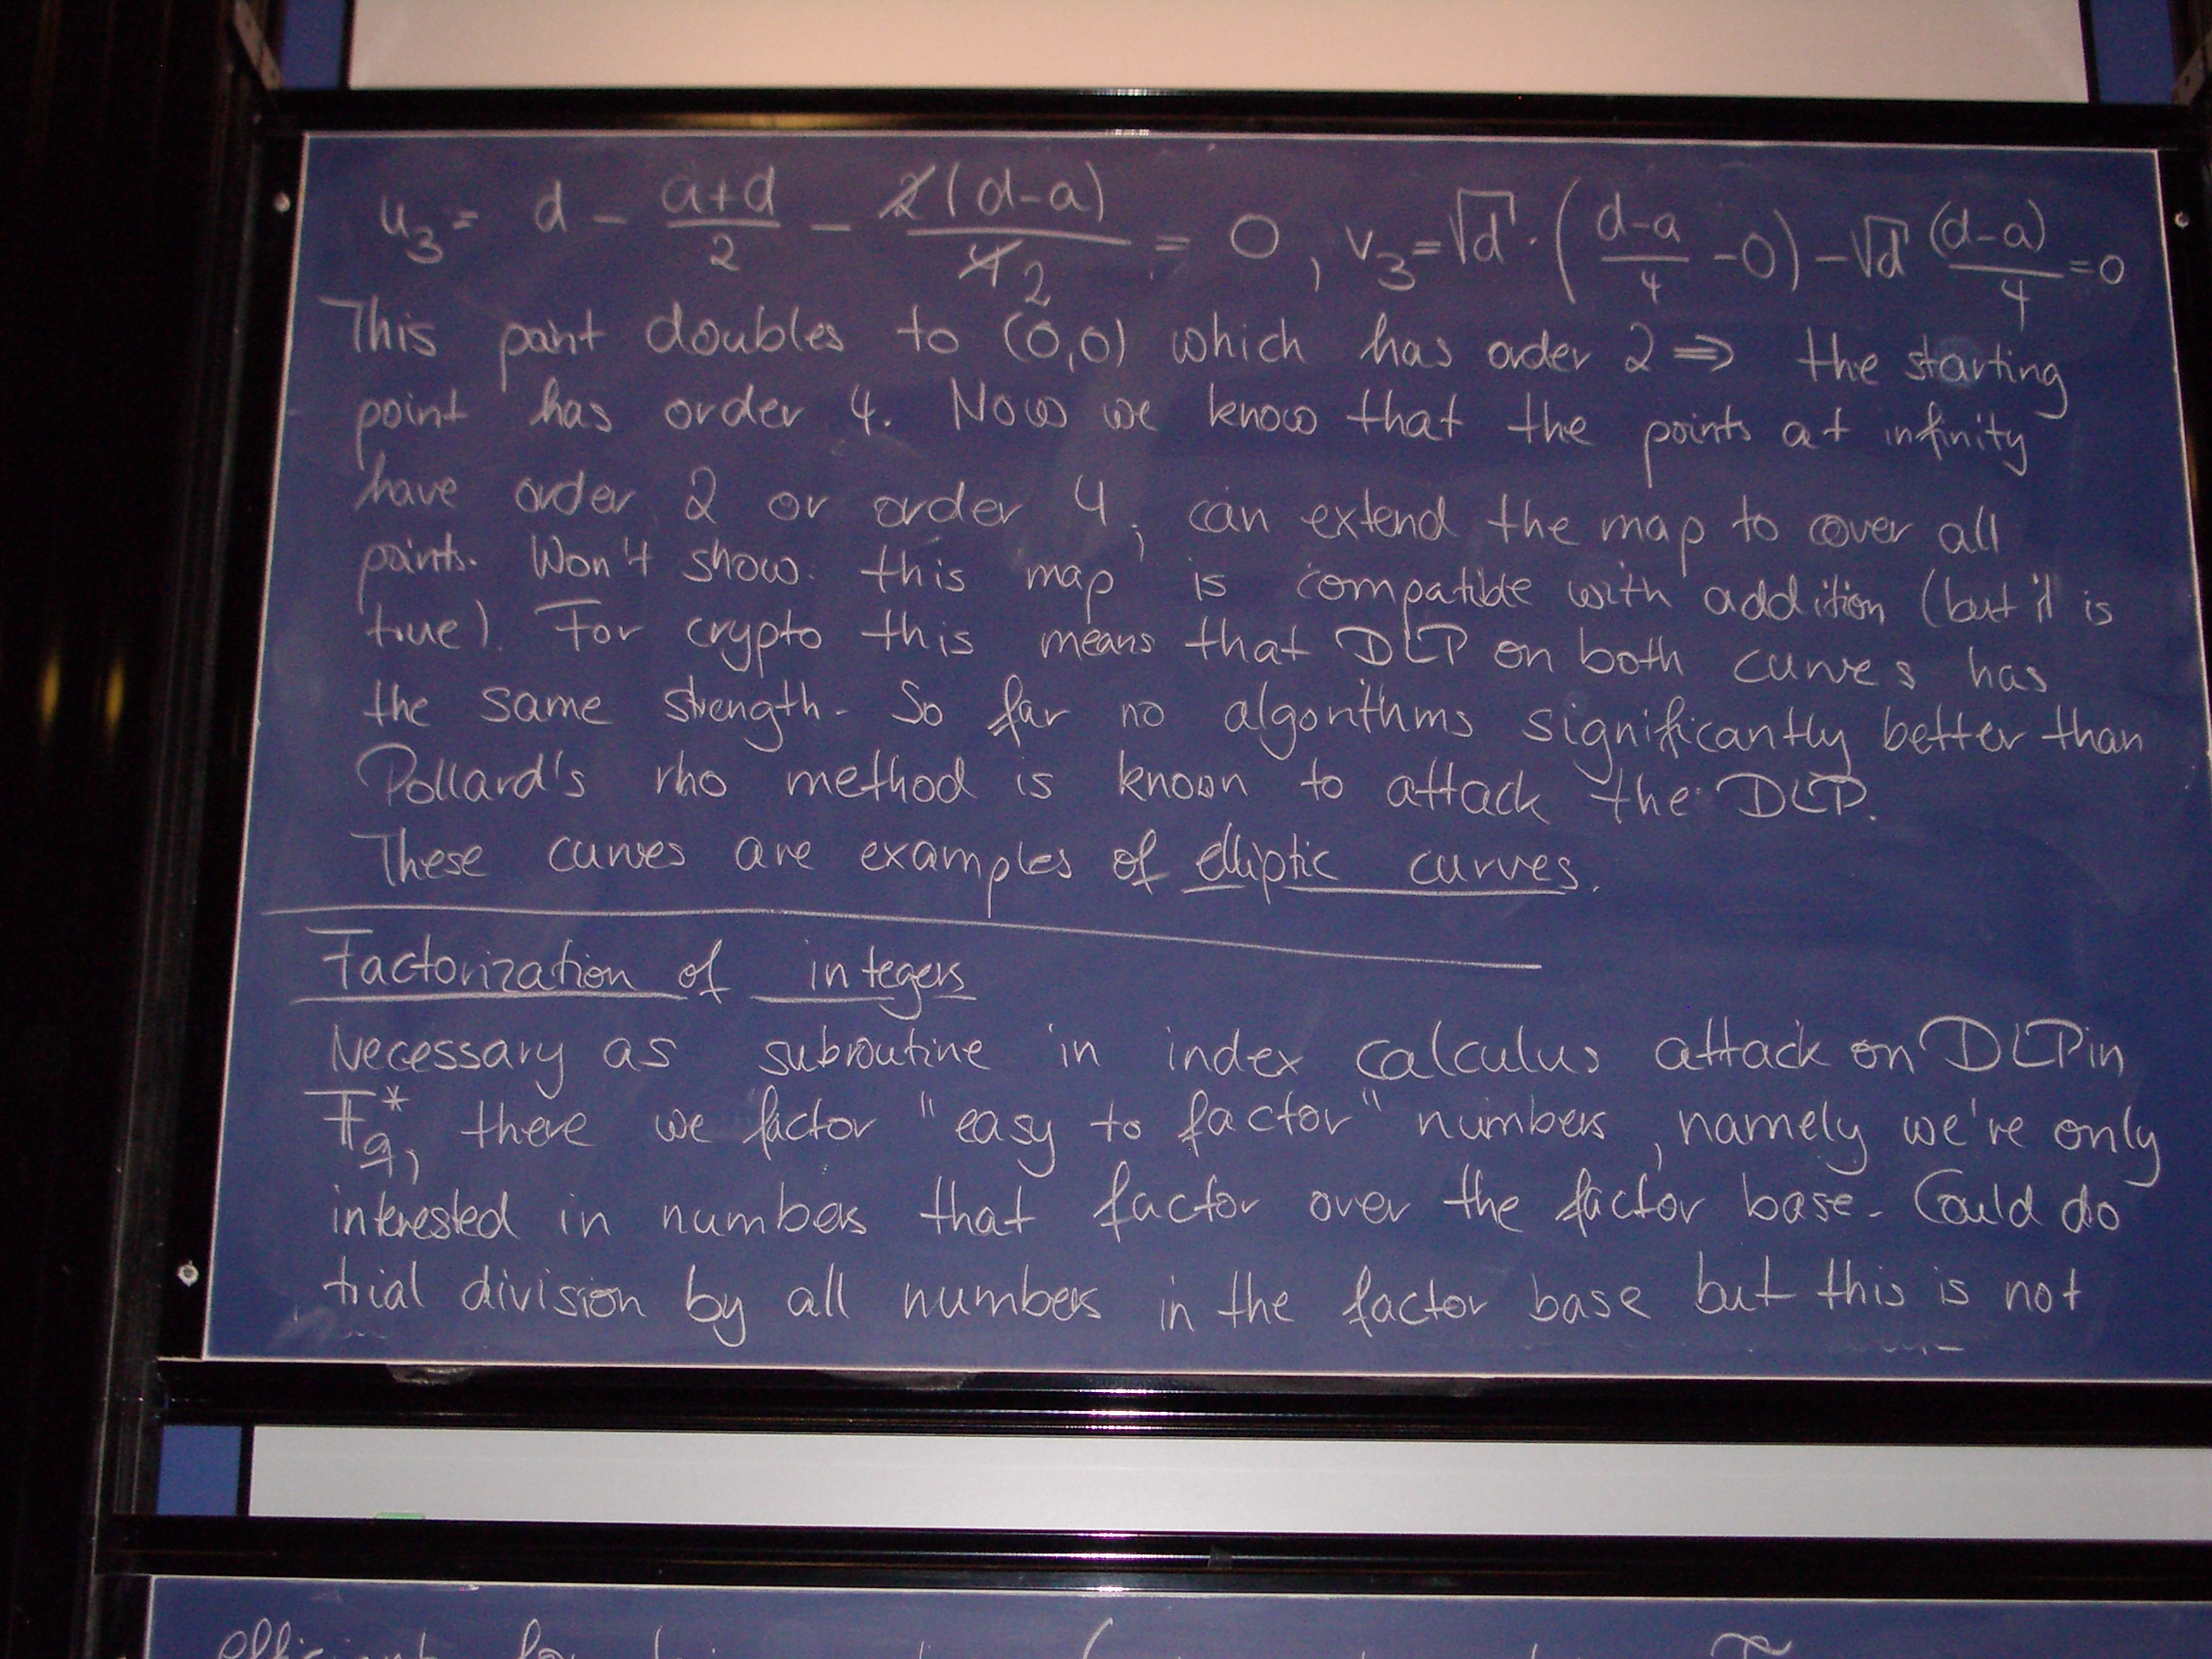 u₃ = d − (a+d)/2 − 2(d−a)/4 2 = 0, v₃ = √d · ((d−a)/4 − 0) − √d (d−a)/4 = 0
This point doubles to (0,0) which has order 2 ⇒ the starting
point has order 4. Now we know that the points at infinity
have order 2 or order 4, can extend the map to cover all
points. Won't show: this map is compatible with addition (but it is
true). For crypto this means that DLP on both curves has
the same strength. So far no algorithms significantly better than
Pollard's rho method is known to attack the DLP.
These curves are examples of elliptic curves.
Factorization of integers
Necessary as subroutine in index calculus attack on DLP in
F_q*, there we factor "easy to factor" numbers, namely we're only
interested in numbers that factor over the factor base. Could do
trial division by all numbers in the factor base but this is not